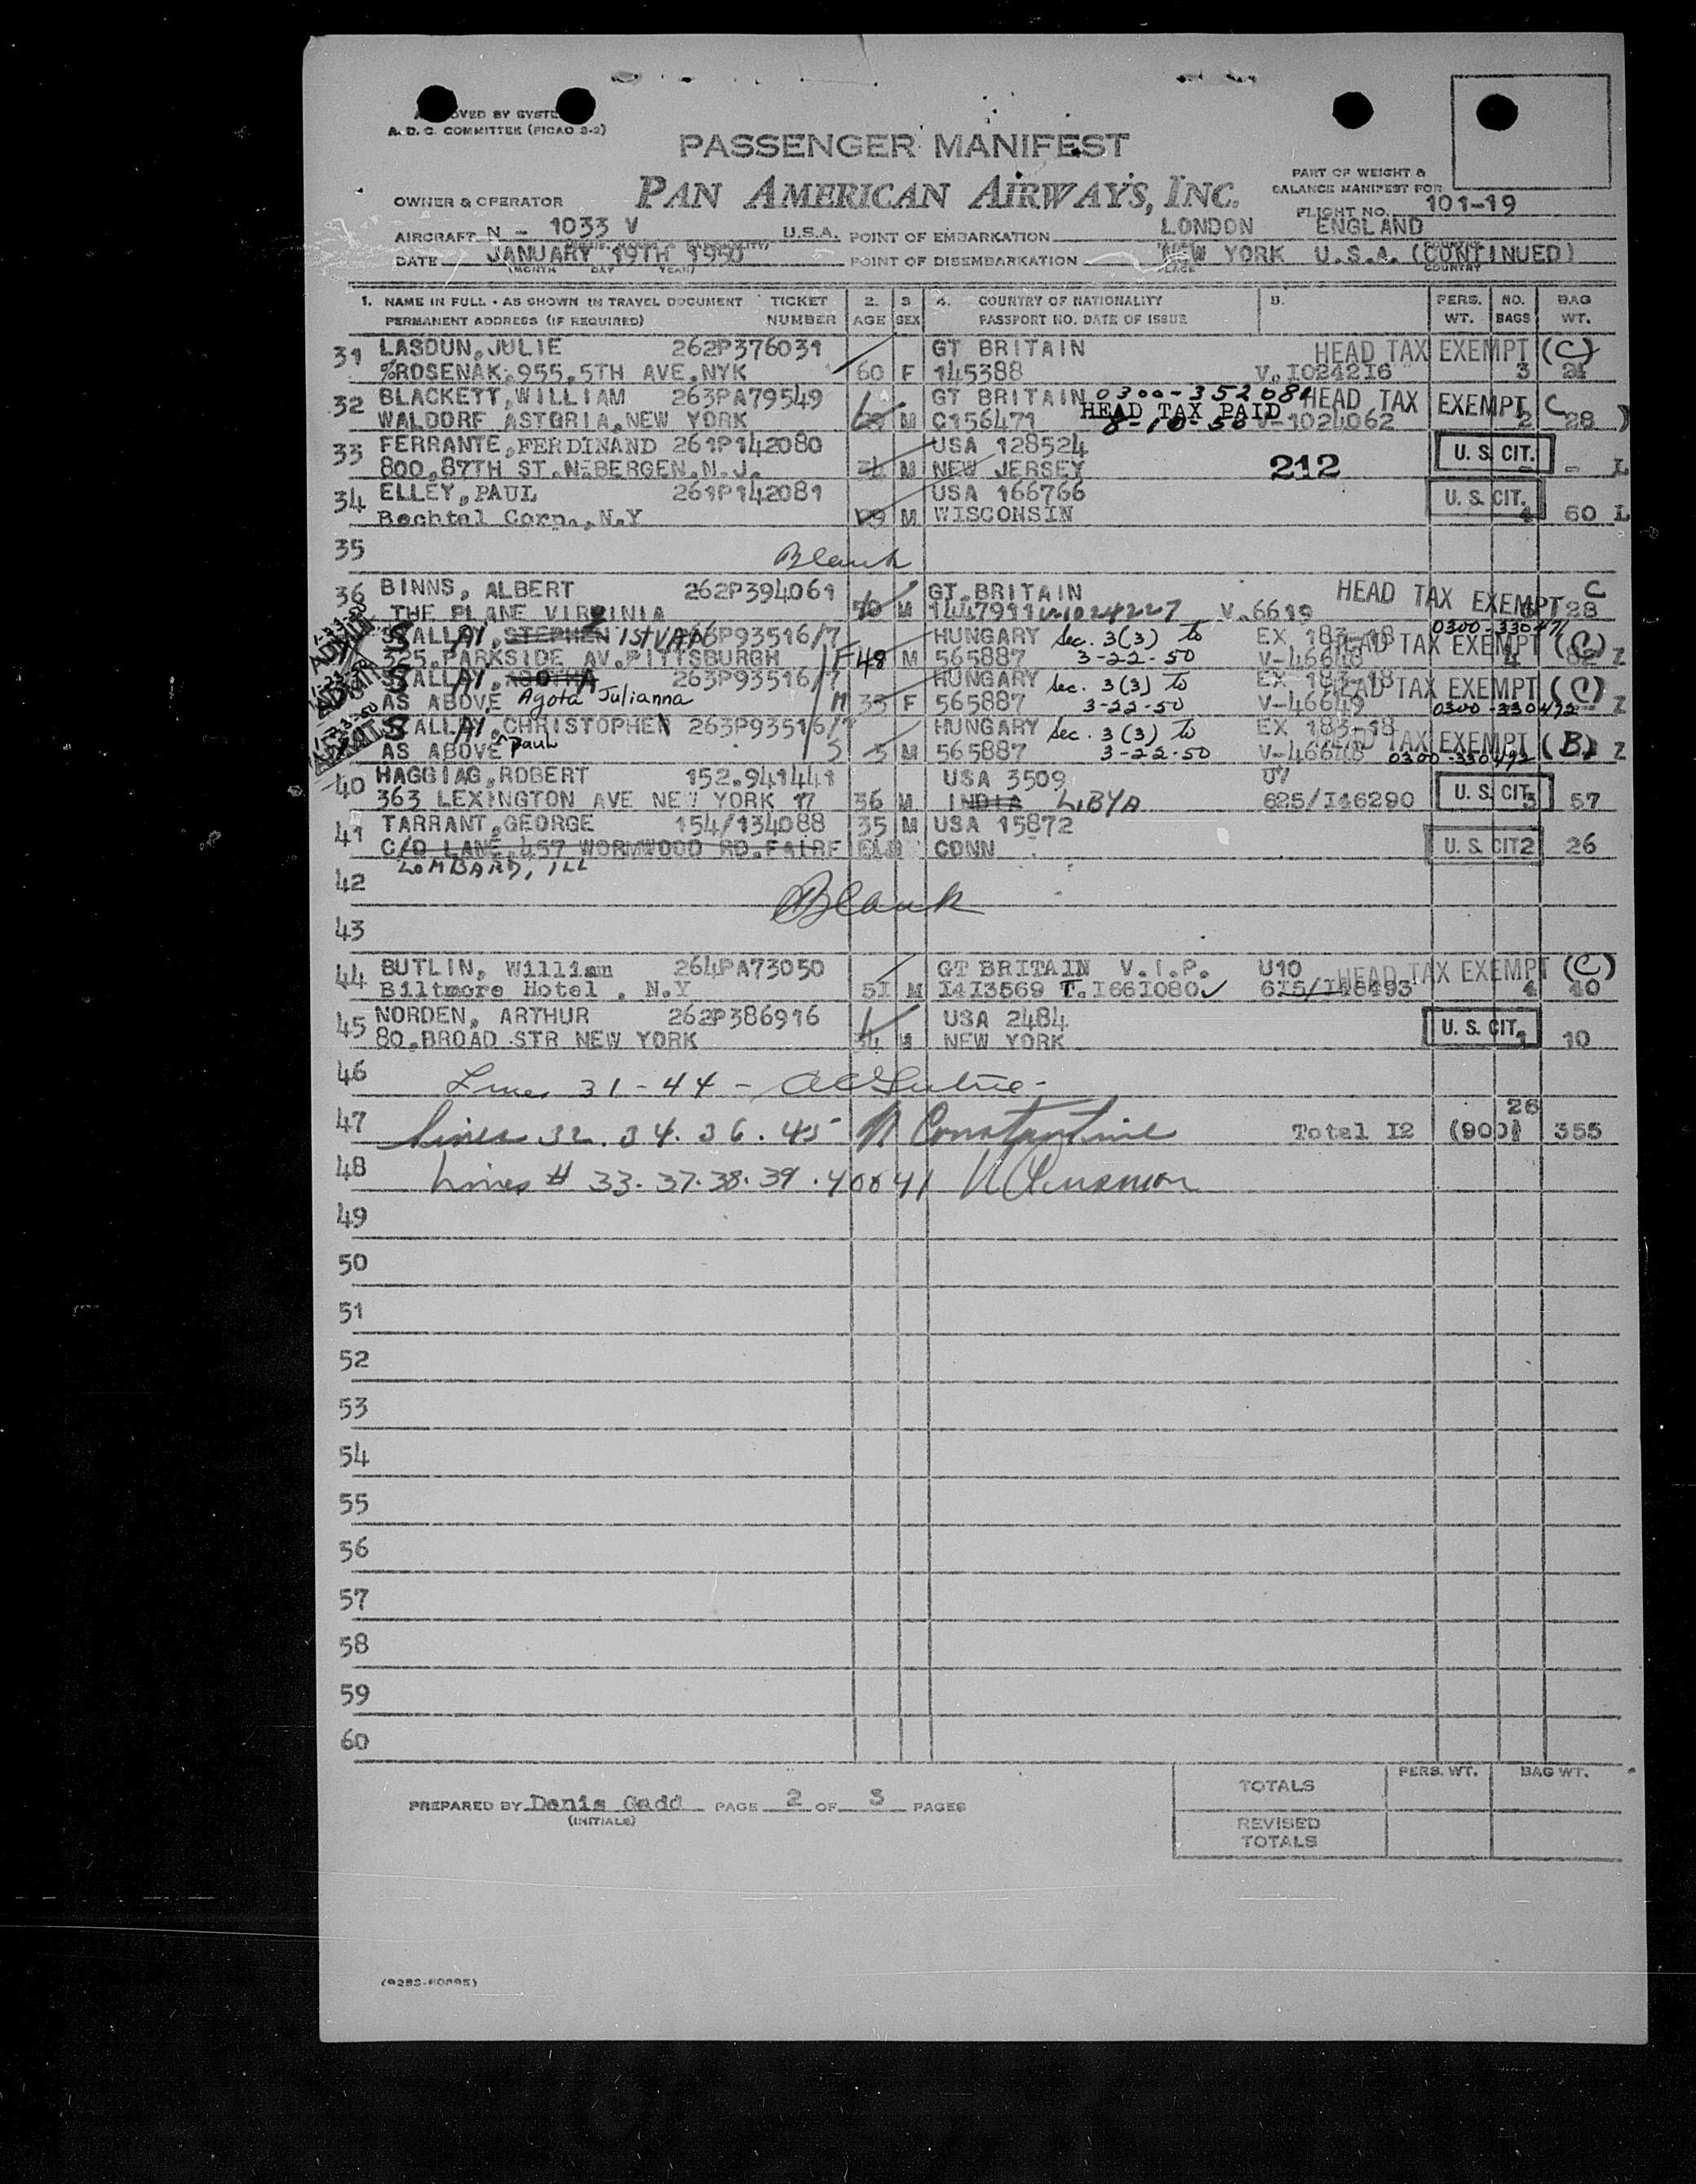 APPROVED BY SYSTEM
A. D. C. COMMITTEE (PICAO 3-2)
PASSENGER MANIFEST
PAN AMERICAN AIRWAYS, INC.
PART OF WEIGHT &
BALANCE MANIFEST FOR
OWNER & OPERATOR
FLIGHT NO. 101-19
AIRCRAFT N - 1033 V U.S.A. POINT OF EMBARKATION LONDON ENGLAND
DATE JANUARY 19TH 1950 POINT OF DISEMBARKATION NEW YORK U.S.A. (CONTINUED)
(MONTH DAY YEAR) PLACE COUNTRY
1. NAME IN FULL - AS SHOWN IN TRAVEL DOCUMENT TICKET 2. 3. 4. COUNTRY OF NATIONALITY 5. PERS. NO. BAG
PERMANENT ADDRESS (IF REQUIRED) NUMBER AGE SEX PASSPORT NO. DATE OF ISSUE WT. BAGS WT.
31 LASDUN, JULIE 262P376031 GT BRITAIN HEAD TAX EXEMPT (C)
%ROSENAK.955.5TH AVE.NYK 60 F 145388 V.I024216 3 21
32 BLACKETT, WILLIAM 263PA79549 GT BRITAIN 0300-352081 HEAD TAX EXEMPT C
WALDORF ASTORIA, NEW YORK M C156471 HEAD TAX PAID 8-10-50 V-1024062 2 28
33 FERRANTE, FERDINAND 261P142080 USA 128524 U. S. CIT.
800.87TH ST.N.BERGEN.N.J. M NEW JERSEY 212 - - L
34 ELLEY, PAUL 261P142081 USA 166766 U. S. CIT.
Bechtel Corp., N.Y M WISCONSIN 4 60 L
35 Blank
36 BINNS, ALBERT 262P394061 GT.BRITAIN HEAD TAX EXEMPT C
THE PLANE VIRGINIA M 1447911 V-1024227 V.6619 28
SZALLAY, STEPHEN ISTVAN 263P93516/7 HUNGARY Sec. 3(3) to EX 183-18 0300-330471
325.PARKSIDE AV.PITTSBURGH F 48 M 565887 3-22-50 V-46648 HEAD TAX EXEMPT (C) Z
SZALLAY, AGOTHA 263P93516/7 HUNGARY Sec. 3(3) to EX 183-18 HEAD TAX EXEMPT (C)
AS ABOVE Agota Julianna M 35 F 565887 3-22-50 V-46649 0300-330472 Z
SZALLAY, CHRISTOPHER 263P93516/7 HUNGARY Sec. 3(3) to EX 183-18 HEAD TAX EXEMPT (B)
AS ABOVE Paul S 5 M 565887 3-22-50 V-46648 0300-330492 Z
40 HAGGIAG, ROBERT 152.941441 USA 3509 U7 U. S. CIT.
363 LEXINGTON AVE NEW YORK 17 36 M INDIA LIBYA 625/I46290 3 57
41 TARRANT, GEORGE 154/134088 35 M USA 15872
C/O LANE, 457 WORMWOOD RD.FAIRFIELD CONN U. S. CIT. 2 26
LOMBARD, ILL
42
Blank
43
44 BUTLIN, William 264PA73050 GT BRITAIN V.I.P. U10 HEAD TAX EXEMPT (C)
Biltmore Hotel . N.Y 51 M I4I3569 T.I66I080 4 40
45 NORDEN, ARTHUR 262P386916 USA 2484 U. S. CIT.
80.BROAD STR NEW YORK 34 NEW YORK 1 10
46 Lines 31-44 -
47 Lines 32. 34. 36. 45 N Constantine Total I2 26 355
48 Lines # 33. 37. 38. 39. 40 & 41
49
50
51
52
53
54
55
56
57
58
59
60
PERS. WT. BAG WT.
TOTALS
PREPARED BY Denis Gadd PAGE 2 OF 3 PAGES
(INITIALS)
REVISED
TOTALS